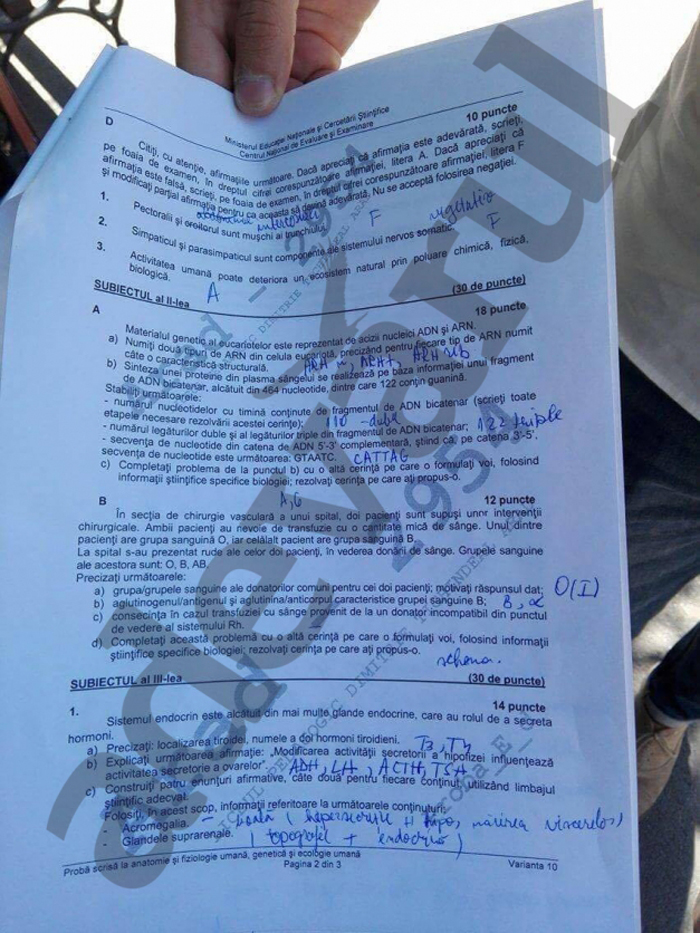 Ministerul Educației Naționale și Cercetării Științifice
Centrul Național de Evaluare și Examinare
D 10 puncte
Citiți, cu atenție, afirmațiile următoare. Dacă apreciați că afirmația este adevărată, scrieți,
pe foaia de examen, în dreptul cifrei corespunzătoare afirmației, litera A. Dacă apreciați că
afirmația este falsă, scrieți, pe foaia de examen, în dreptul cifrei corespunzătoare afirmației, litera F
și modificați parțial afirmația pentru ca aceasta să devină adevărată. Nu se acceptă folosirea negației.
1. Pectoralii și croitorul sunt mușchi ai trunchiului. F
vegetativ
2. Simpaticul și parasimpaticul sunt componente ale sistemului nervos somatic. F
3. Activitatea umană poate deteriora un ecosistem natural prin poluare chimică, fizică,
biologică. A
SUBIECTUL al II-lea (30 de puncte)
A 18 puncte
Materialul genetic al eucariotelor este reprezentat de acizii nucleici ADN și ARN.
a) Numiți două tipuri de ARN din celula eucariotă, precizând pentru fiecare tip de ARN numit
câte o caracteristică structurală. ARN m, ARNt, ARN rib
b) Sinteza unei proteine din plasma sângelui se realizează pe baza informației unui fragment
de ADN bicatenar, alcătuit din 464 nucleotide, dintre care 122 conțin guanină.
Stabiliți următoarele:
- numărul nucleotidelor cu timină conținute de fragmentul de ADN bicatenar (scrieți toate
etapele necesare rezolvării acestei cerințe); 110 - duble
- numărul legăturilor duble și al legăturilor triple din fragmentul de ADN bicatenar; 122 triple
- secvența de nucleotide din catena de ADN 5'-3' complementară, știind că, pe catena 3'-5',
secvența de nucleotide este următoarea: GTAATC. CATTAG
c) Completați problema de la punctul b) cu o altă cerință pe care o formulați voi, folosind
informații științifice specifice biologiei; rezolvați cerința pe care ați propus-o.
A, G
B 12 puncte
În secția de chirurgie vasculară a unui spital, doi pacienți sunt supuși unor intervenții
chirurgicale. Ambii pacienți au nevoie de transfuzie cu o cantitate mică de sânge. Unul dintre
pacienți are grupa sanguină O, iar celălalt pacient are grupa sanguină B.
La spital s-au prezentat rude ale celor doi pacienți, în vederea donării de sânge. Grupele sanguine
ale acestora sunt: O, B, AB.
Precizați următoarele:
a) grupa/grupele sanguine ale donatorilor comuni pentru cei doi pacienți; motivați răspunsul dat; O(I)
b) aglutinogenul/antigenul și aglutinina/anticorpul caracteristice grupei sanguine B; B, α
c) consecința în cazul transfuziei cu sânge provenit de la un donator incompatibil din punctul
de vedere al sistemului Rh.
d) Completați această problemă cu o altă cerință pe care o formulați voi, folosind informații
științifice specifice biologiei; rezolvați cerința pe care ați propus-o.
schema.
SUBIECTUL al III-lea (30 de puncte)
1. 14 puncte
Sistemul endocrin este alcătuit din mai multe glande endocrine, care au rolul de a secreta
hormoni.
a) Precizați: localizarea tiroidei, numele a doi hormoni tiroidieni. T3, T4
b) Explicați următoarea afirmație: „Modificarea activității secretorii a hipofizei influențează
activitatea secretorie a ovarelor". ADH, LH, ACTH, TSH
c) Construiți patru enunțuri afirmative, câte două pentru fiecare conținut, utilizând limbajul
științific adecvat.
Folosiți, în acest scop, informații referitoare la următoarele conținuturi:
- Acromegalia. - boală (hipersecreție mărirea viscerelor)
- Glandele suprarenale. (topografie + endocrine)
Probă scrisă la anatomie și fiziologie umană, genetică și ecologie umană Varianta 10
Pagina 2 din 3
adevărul